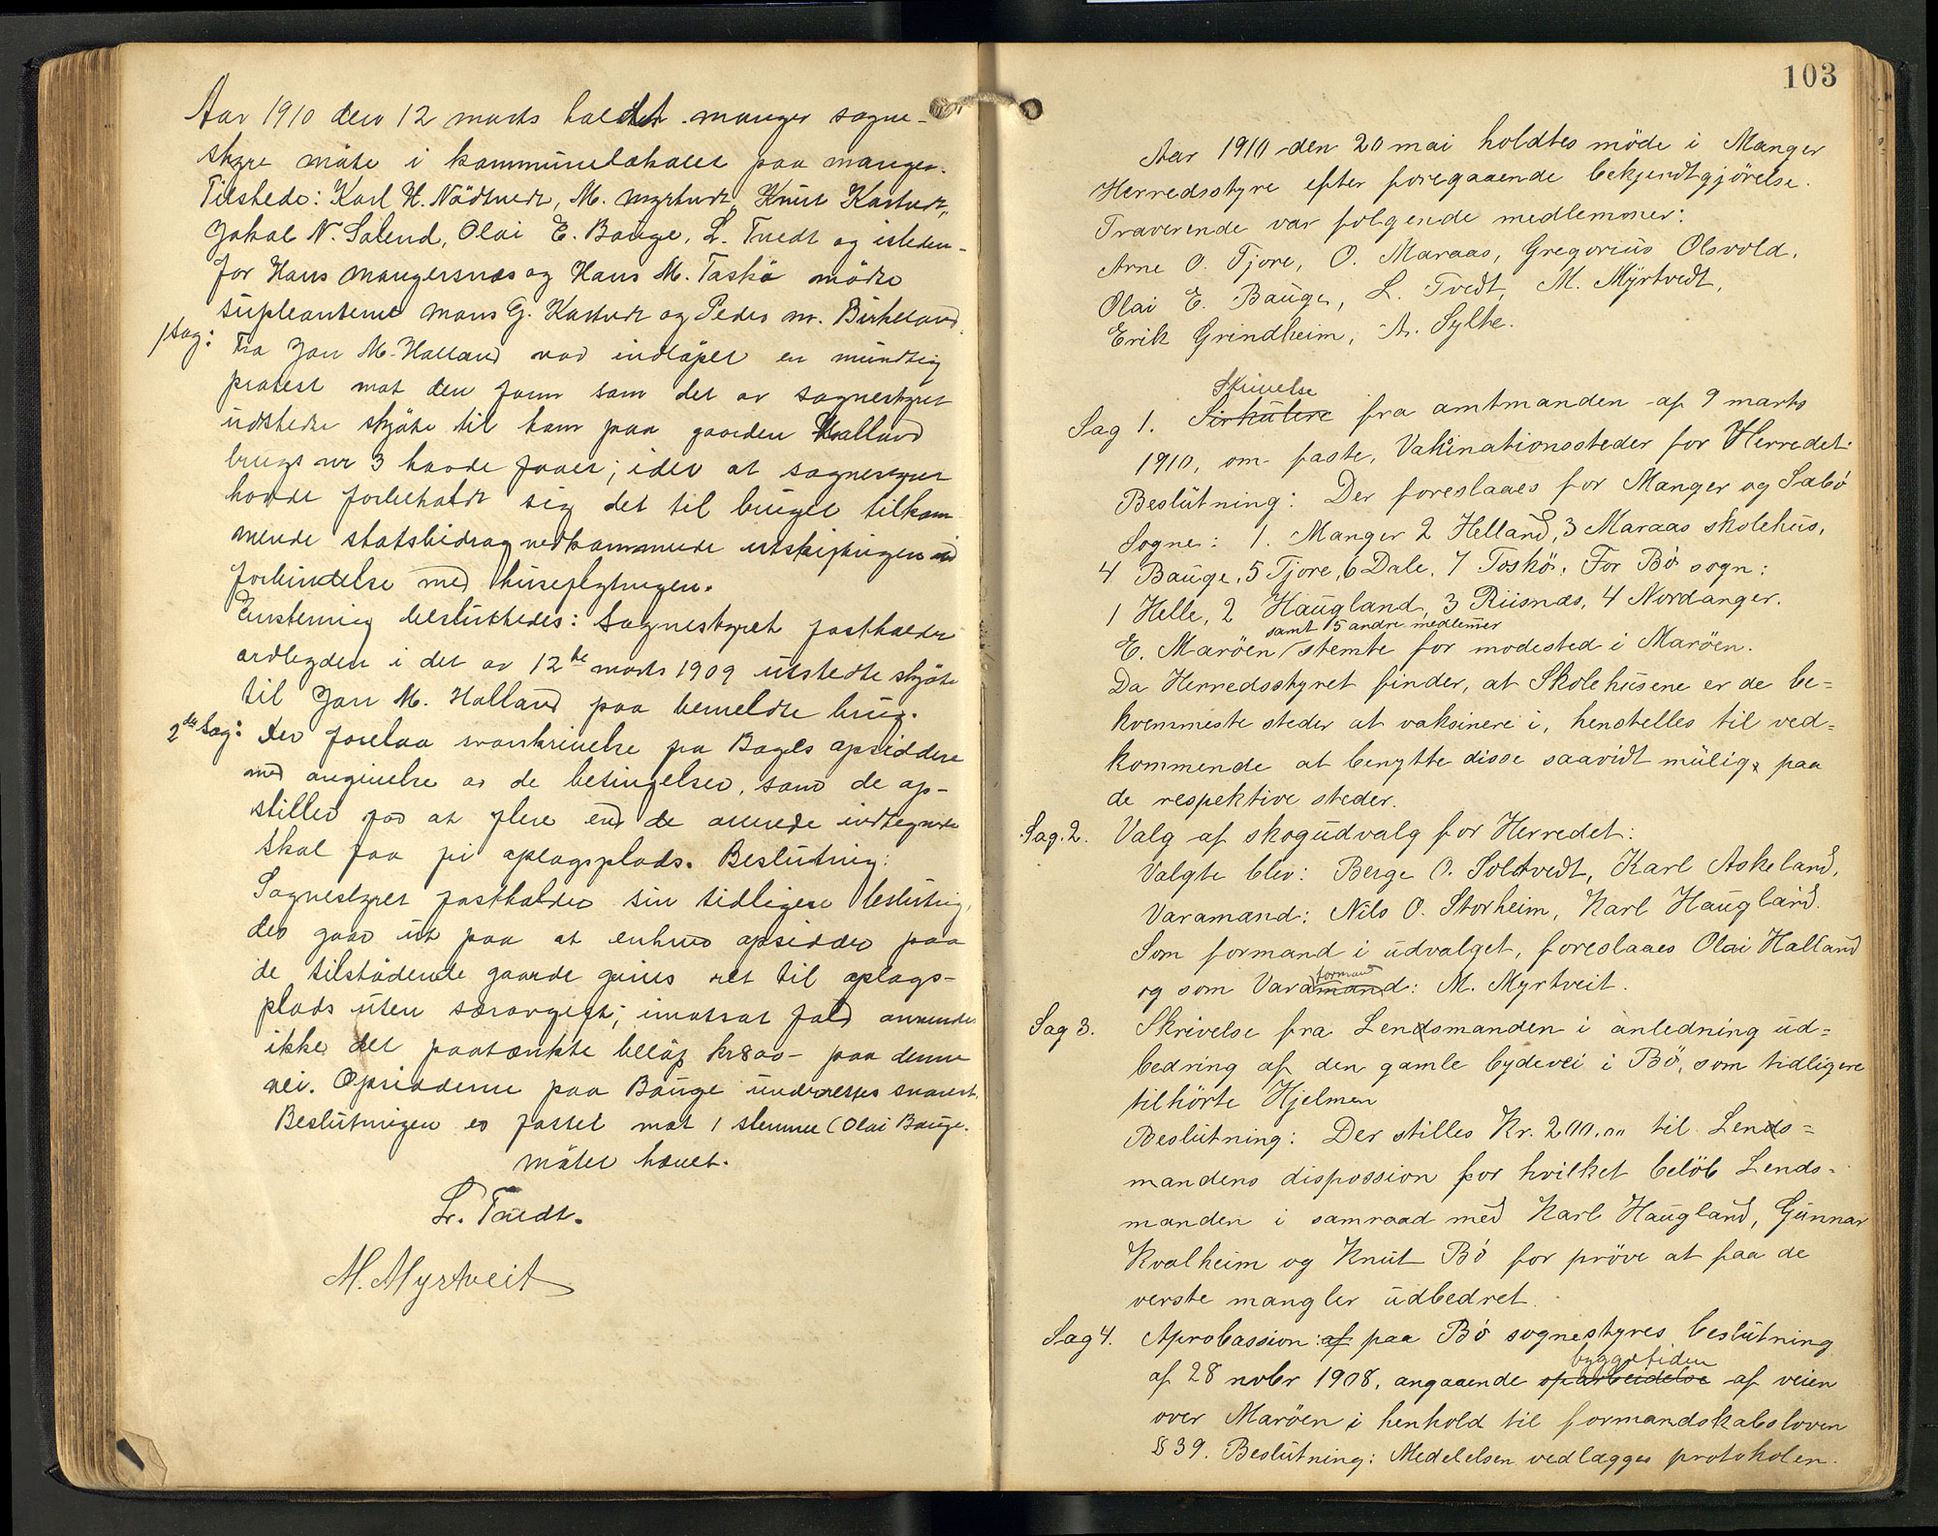 Aar 1910 den 12 marts holdtes manger sogne-
styre møte i kommunelokalet paa manger.
Tilstede: Karl H. Nödtvedt, M. Myrtvedt, Knut Kartvedt,
Jakob N. Solend, Olai E. Bauge, L. Tvedt og isteden-
for Hans Mangersnæs og Hans M. Taskö mödte
supleanterne Mons G. Kartvedt og Peder m. Birkeland.
1 Sag: Fra Jon M. Halland var indlöpet en mundtlig
protest mot den form som det av sognestyret
utstedte skjöte til ham paa gaarden Halland
brugs nr 3 havde faaet; idet at sognestyret
havde forbeholdt sig det til bruget tilkom
mende statsbidrag vedkommende utskiftningen i
forbindelse med husflytningen.
Enstemmig besluttedes: Sognestyret fastholder
ordlyden i det av 12te marts 1909 utstedte skjöte
til Jon M. Halland paa bemeldte brug.
2den Sag: Der forelaa svarskrivelse fra Bauges opsiddere
med angivelse av de betingelser, som de op-
stiller for at flere end de allerede indtegnede
skal faa fri oplagsplads. Beslutning:
Sognestyret fastholder sin tidligere beslutnig,
der gaar ut paa at enhver opsidder paa
de tilstödende gaarde gives ret til oplags-
plads uten særavgift; imotsat fald anvendes
ikke det paatænkte belöp kr 800- paa denne
vei. Opsidderne paa Bauge underrettes snarest.
Beslutningen er fattet mot 1 stemme (Olai Bauge.
mötet hævet.
L. Tvedt.
M. Myrtveit
103
Aar 1910 den 20 mai holdtes möde i Manger
Herredsstyre efter foregaaende bekjendtgjörelse.
Fraverende var folgende medlemmer:
Arne O. Fjore, O. Maraas, Gregorius Olsvold,
Olai E. Bauge, L. Tvedt, M. Myrtvedt,
Erik Grindheim, A. Sylte.
Skrivelse
Sag 1. Sirkulere fra amtmanden af 9 marts
1910, om faste, Vaksinationssteder for Herredet.
Beslutning: Der foreslaaes for Manger og Sæbö
Sogne: 1. Manger 2 Helland, 3 Maraas skolehus,
4 Bauge, 5 Fjore, 6 Dale, 7 Toskö, For Bö sogn:
1 Helle, 2 Haugland, 3 Riisnæs, 4 Nordanger.
samt 5 andre medlemer
E. Maröen / stemte for modested i Maröen.
Da Herredsstyret finder, at Skolehusene er de be=
kvemmeste steder at vaksinere i, henstelles til ved=
kommende at benytte disse saavidt mulig, paa
de respektive steder.
Sag. 2. Valg af skogudvalg for Herredet:
Valgte blev: Berge O. Soltvedt, Karl Askeland,
Varamænd: Nils O. Storheim, Karl Haugland.
Som formand i udvalget, foreslaaes Olai Halland
formand
og som Varamand: M. Myrtveit.
Sag 3. Skrivelse fra Lendsmanden i anledning ud=
bedring af den gamle bydevei i Bö, som tidligere
tilhörte Hjelmen
Beslutning: Der stilles Kr. 200,00 til Lends=
mandens dispossion for hvilket belöb Lends=
manden i samraad med Karl Haugland, Gunnar
Kvalheim og Knut Bö for pröve at faa de
verste mangler udbedret.
Sag 4. Aprobassion: af paa Bö sognestyres beslutning
byggetiden
af 28 nobr 1908, angaaende oparbeidelse af veien
over Maröen i henhold til formandskabsloven
§ 39. Beslutning: Medelelsen vedlægges protokolen.